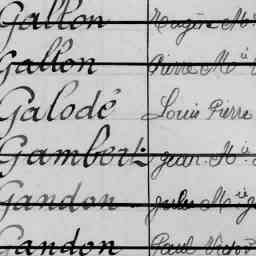 Gallon Eugène M
Gallon Pierre M
Galodé Louis Pierre
Gambert Jean M
Gandon Jules M
Gandon Paul Victor